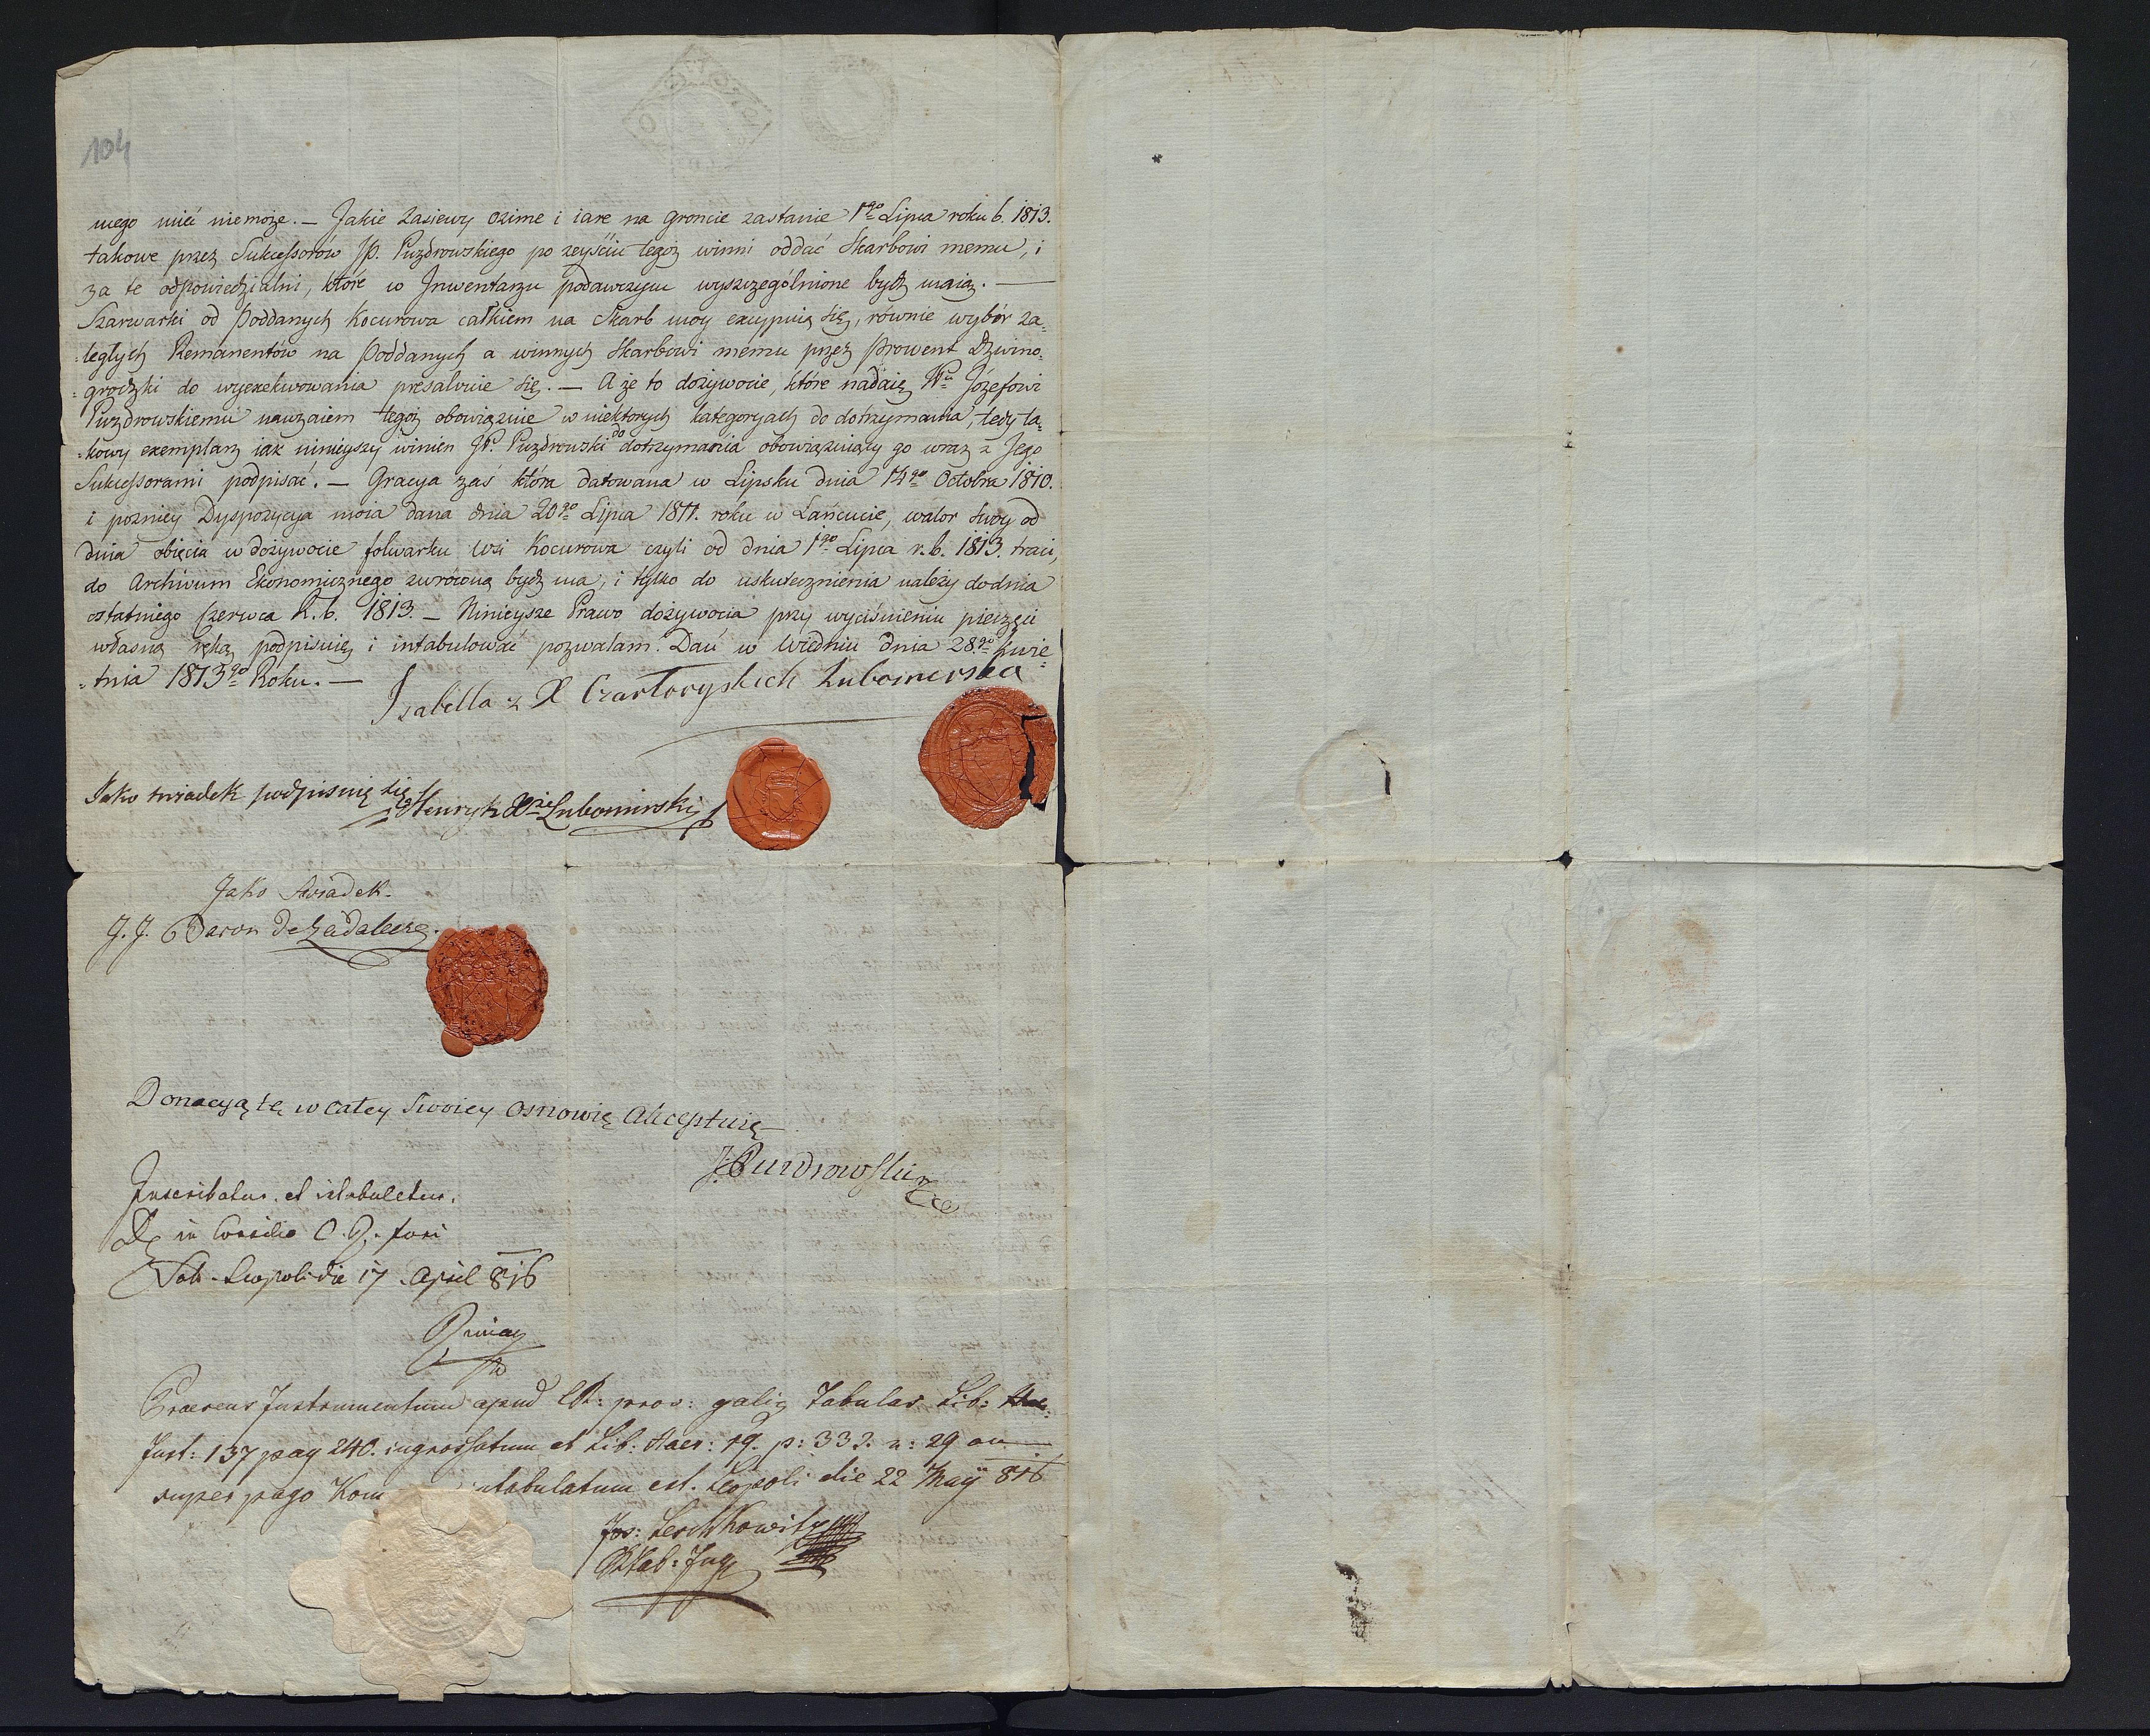 104
nego mieć niemoże. — Jakie Zasiewy ozime i iare na gruncie zastanie 1go Lipca roku b. 1813.
takowe przez Sukcessorów JP. Puzdrowskiego po zeyściu tegoż winni oddać Skarbowi memu, i
za te odpowiedzialni, które w Inwentarzu podawczym wyszczególnione bydź maią. —
Szarwarki od Poddanych Kocurowa całkiem na Skarb moy excypuią się, równie wybór za=
=ległych Remanentów na Poddanych a winnych Skarbowi memu przez Prowent Dzwino=
=grodzki do wyexekwowania presalwuie się. — A że to dożywocie, które nadaię Wu Józefowi
Puzdrowskiemu nawzaiem tegoż obowiązuie w niektorych kategoryach do dotrzymania, tedy ta=
=kowy exemplarz iak ninieyszy winien JP. Puzdrowski do dotrzymania obowiązuiący go wraz z Jego
Sukcessorami podpisać. — Gracya zaś która datowana w Lipsku dnia 14go Octobra 1810.
i pozniey Dyspozycya moia dana dnia 20go Lipca 1811. roku w Łańcucie, walor swoy od
dnia obięcia w dożywocie folwarku wsi Kocurowa czyli od dnia 1go Lipca r. b. 1813. traci,
do Archivum Ekonomicznego zwróconą bydź ma, i tylko do uskutecznienia należy do dnia
ostatniego Czerwca R. b. 1813. — Ninieysze Prawo dożywocia przy wyciśnieniu pieczęci
własną ręką podpisuię i intabulować pozwalam. Dań w Wiedniu dnia 28go Kwie=
=tnia 1813go Roku. —
Izabella z X Czartoryskich Lubomirska
Jako swiadek podpisuię się Henryk Xże Lubomirski
Jako Swiadek.
J. J. Baron
Donacyą tę w całey Swoiey osnowie Akceptuię
J. Puzdrowski
Inscribatur et intabuletur.
in Consilio C. R. fori
Nob. Leopoli die 17 April 816
Praesens Instrumentum apud CR: prov: galic Tabulas Lib:
Inst: 137 pag 240. ingrossatum et Lib: Haer: 19. p: 332. n: 29 on
super pago intabulatum est. Leopoli die 22 Maij 816
Jos: Leschkowitz